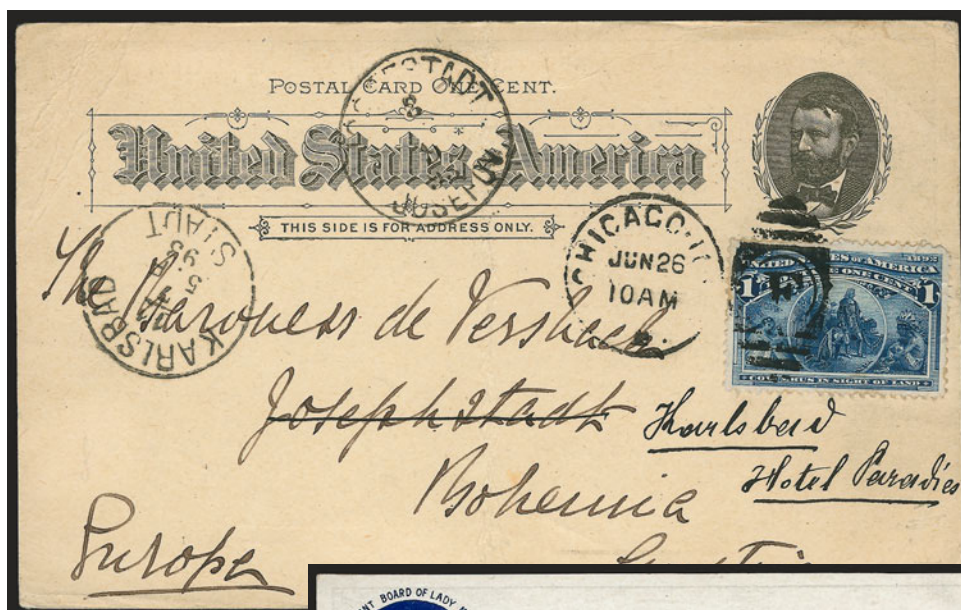 POSTAL CARD ONE CENT.
United States America
THIS SIDE IS FOR ADDRESS ONLY.
JOSEFSTADT
CHICAGO. ILL
JUN 26
10 AM
KARLSBAD
STADT
5
93
UNITED STATES OF AMERICA
1892
ONE CENT
1 1
COLUMBUS IN SIGHT OF LAND
The Baroness de
Josephstadt Karlsbad
Hotel Paradies
Bohemia
Europe
BOARD OF LADY